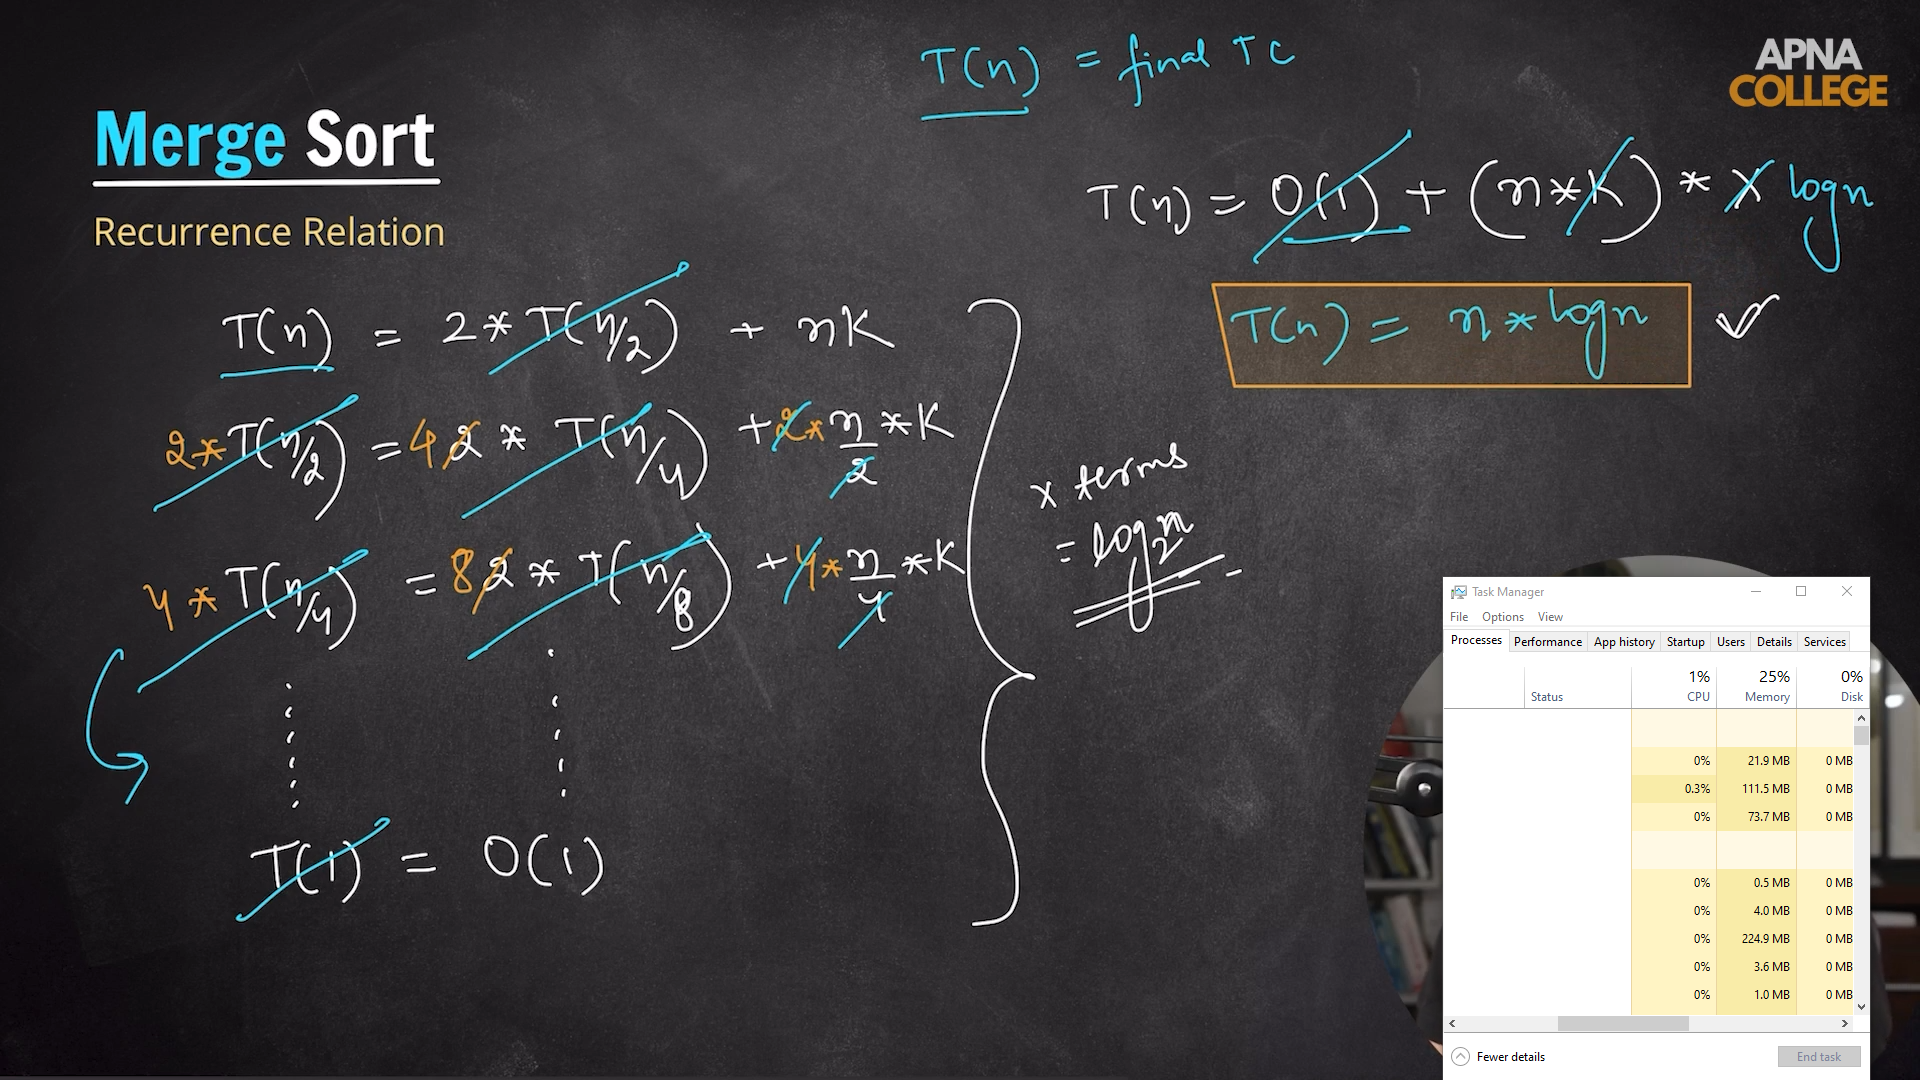 T(n) = final TC
APNA
COLLEGE
Merge Sort
Recurrence Relation
T(n) = O(1) + (n*K) * x logn
T(n) = n * logn
T(n) = 2 * T(n/2) + nK
2 * T(n/2) = 4 2 * T(n/4) + 2 * n/2 * K
4 * T(n/4) = 8 2 * T(n/8) + 4 * n/4 * K
T(1) = O(1)
x terms
= log2n
Task Manager
File Options View
Processes Performance App history Startup Users Details Services
1% 25% 0%
Status CPU Memory Disk
0% 21.9 MB 0 MB
0.3% 111.5 MB 0 MB
0% 73.7 MB 0 MB
0% 0.5 MB 0 MB
0% 4.0 MB 0 MB
0% 224.9 MB 0 MB
0% 3.6 MB 0 MB
0% 1.0 MB 0 MB
Fewer details End task